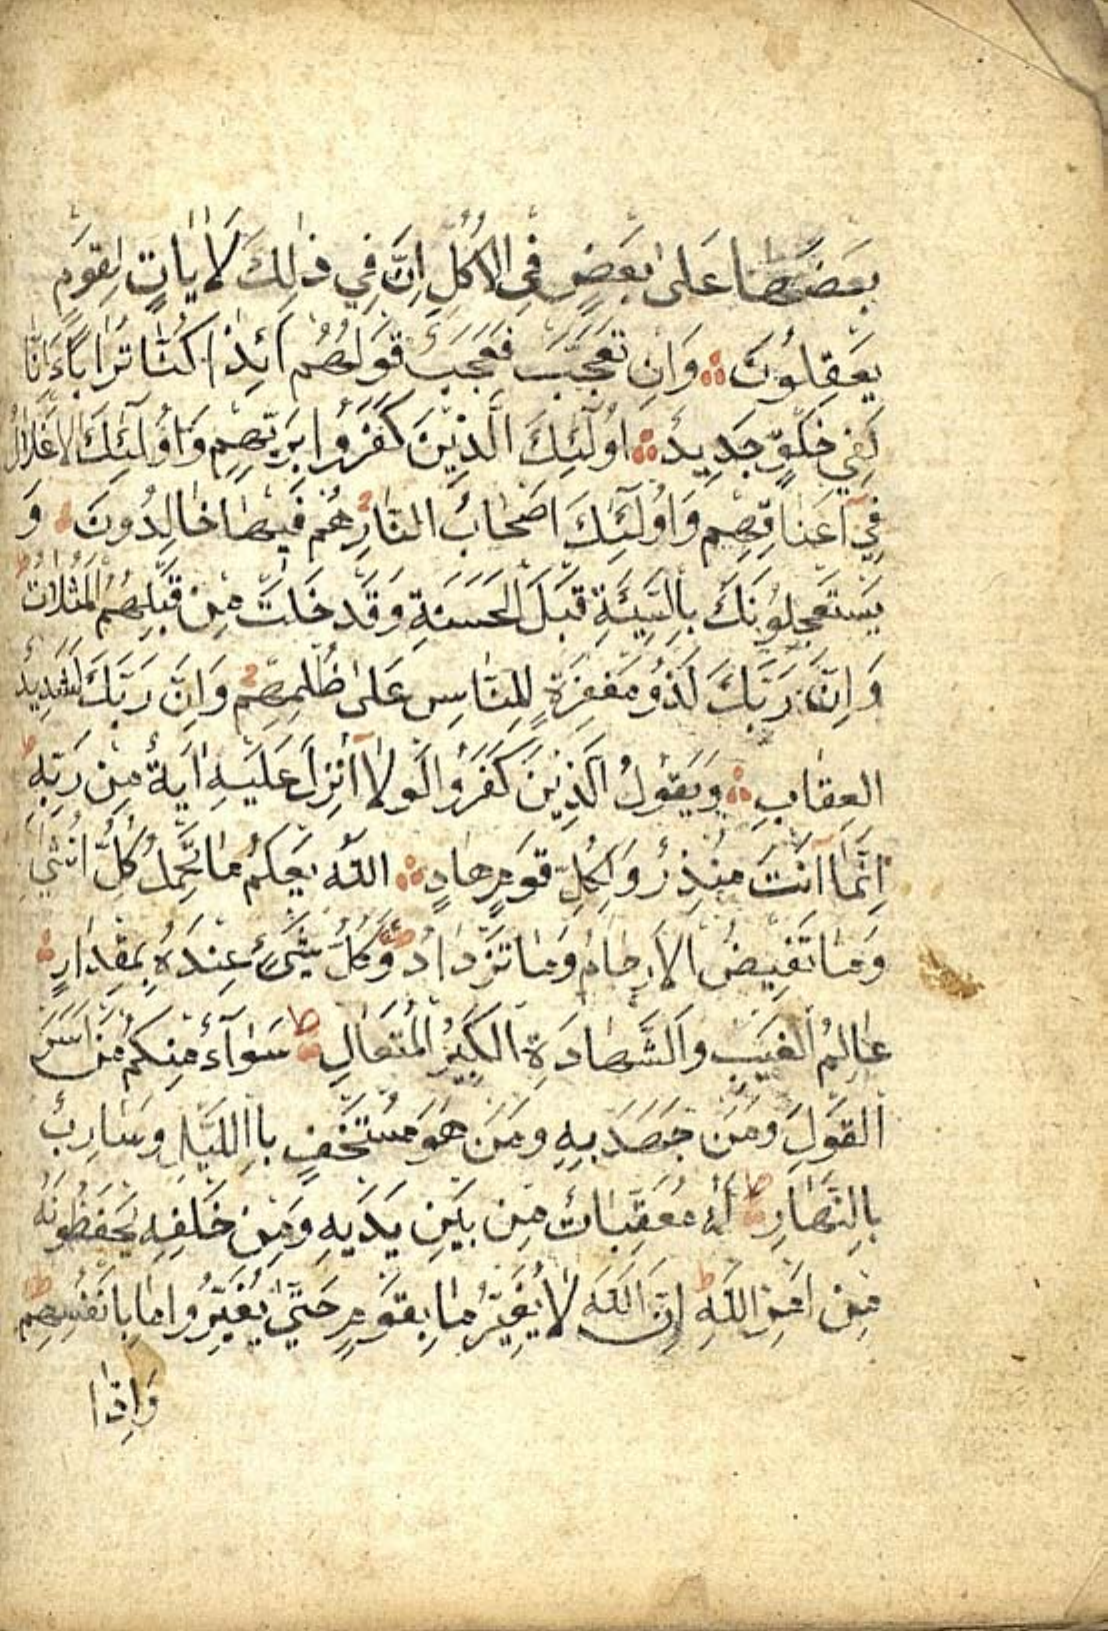 بَعْضَهَا عَلٰى بَعْضٍ فِى الْاُكُلِ اِنَّ فِي ذٰلِكَ لَاٰيَاتٍ لِقَوْمٍ
يَعْقِلُونَ وَاِنْ تَعْجَبْ فَعَجَبٌ قَوْلُهُمْ ءَاِذَا كُنَّا تُرَابًا ءَاِنَّا
لَفِي خَلْقٍ جَدِيدٍ اُولٰٓئِكَ الَّذِيْنَ كَفَرُوا بِرَبِّهِمْ وَاُولٰٓئِكَ الْاَغْلَالُ
فِيٓ اَعْنَاقِهِمْ وَاُولٰٓئِكَ اَصْحَابُ النَّارِ هُمْ فِيْهَا خَالِدُونَ وَ
يَسْتَعْجِلُوْنَكَ بِالسَّيِّئَةِ قَبْلَ الْحَسَنَةِ وَقَدْ خَلَتْ مِنْ قَبْلِهِمُ الْمَثُلَاتُ
وَاِنَّ رَبَّكَ لَذُو مَغْفِرَةٍ لِلنَّاسِ عَلٰى ظُلْمِهِمْ وَاِنَّ رَبَّكَ لَشَدِيدُ
الْعِقَابِ وَيَقُوْلُ الَّذِيْنَ كَفَرُوا لَوْلَآ اُنْزِلَ عَلَيْهِ اٰيَةٌ مِنْ رَبِّهِ
اِنَّمَآ اَنْتَ مُنْذِرٌ وَلِكُلِّ قَوْمٍ هَادٍ اَللّٰهُ يَعْلَمُ مَا تَحْمِلُ كُلُّ اُنْثٰى
وَمَا تَغِيْضُ الْاَرْحَامُ وَمَا تَزْدَادُ وَكُلُّ شَىْءٍ عِنْدَهُ بِمِقْدَارٍ
عَالِمُ الْغَيْبِ وَالشَّهَادَةِ الْكَبِيْرُ الْمُتَعَالِ سَوَآءٌ مِنْكُمْ مَنْ اَسَرَّ
الْقَوْلَ وَمَنْ جَهَرَ بِهِ وَمَنْ هُوَ مُسْتَخْفٍ بِاللَّيْلِ وَسَارِبٌ
بِالنَّهَارِ لَهُ مُعَقِّبَاتٌ مِنْ بَيْنِ يَدَيْهِ وَمِنْ خَلْفِهِ يَحْفَظُوْنَهُ
مِنْ اَمْرِ اللّٰهِ اِنَّ اللّٰهَ لَا يُغَيِّرُ مَا بِقَوْمٍ حَتّٰى يُغَيِّرُوا مَا بِاَنْفُسِهِمْ
وَاِذَا